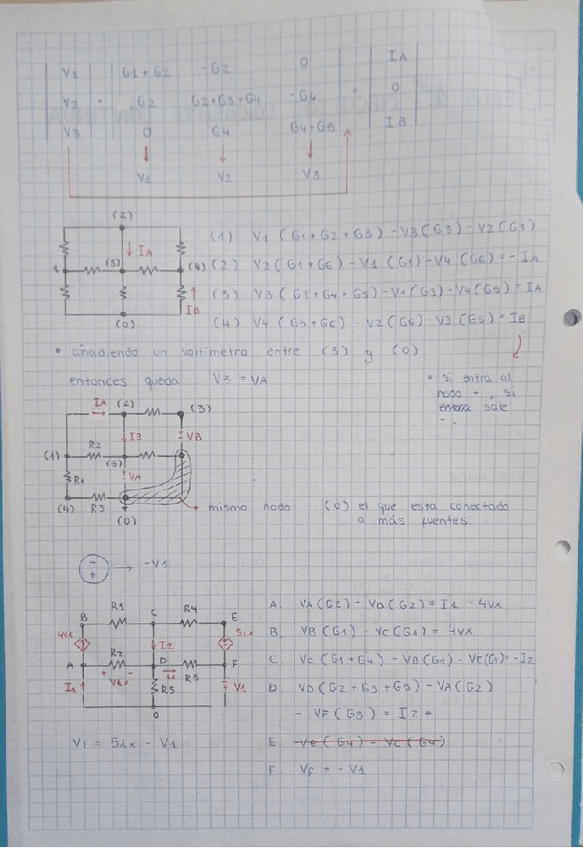 V1 G1 + G2 -G2 0 IA
V2 · G2 G2+G3+G4 -G4 · 0
V3 0 G4 G4+G5 IB
V1 V2 V3
(2)
IA
1 (3) (4)
IB
(0)
(1) V1 (G1 + G2 + G3) - V3(G3) - V2(G1)
(2) V2(G1+G6) - V1(G1) - V4(G6) = - IA
(3) V3(G3+G4+G5) - V1(G3) - V4(G5) = IA
(4) V4(G5+G6) - V2(G6) - V3(G5) = IB
• añadiendo un voltímetro entre (3) y (0)
entonces queda V3 = VA
• Si entra al
nodo + , si
sale
- .
IA (2) (3)
IB VB
R2
(1) (5)
R1 VA
(4) R3
(0)
mismo nodo (0) el que esta conectado
a más fuentes.
- + → -V1
R1 R4
B C E
4Vx I2 5ix
R2
A D F
+ Vx - ix R5
I1 R3 V1
0
VE = 5ix - V1
A. VA(G2) - VD(G2) = I1 - 4Vx
B. VB(G1) - VC(G1) = 4Vx
C. VC(G1+G4) - VB(G1) - VE(G4) = -I2
D. VD(G2+G3+G5) - VA(G2)
- VF(G5) = I2
E. -VE(G4) - VC(G4)
F. VF = - V1